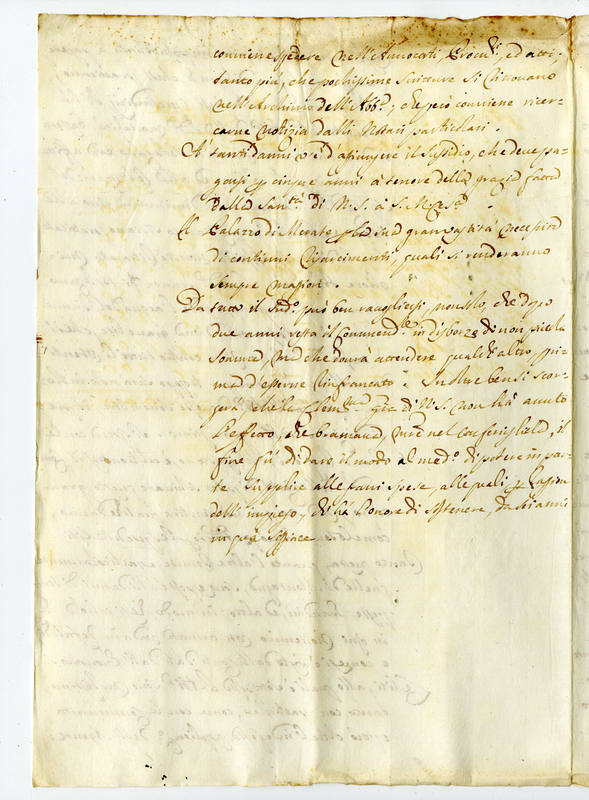 conviene spedere nell'Avvocati, Procu:ri, ed atti,
tanto più, che pochissime scritture si ritrovano
nell'Archivio dell'Abb:a, che però conviene ricer-
carne notizia dalli Notari particolari.
A tanti danni v'è d'aggiungere il sussidio, che deve pa-
garsi p cinque anni à tenore della grazia fatta
dalla San:tà di N. S. à S. M.
Il Palazzo di Merate p la sua gran vastità necessita
di continui risarcimenti, quali si renderanno
sempre magiori.
Da tutto il sud:o può ben racogliersi, non solo, che dopo
due anni resta il Commend:re in disborzo di non picciola
somma, mà che dovrà attendere qualch'altro, pri-
ma d'esserne rinfrancato. Inoltre bensì scor-
gerà, che la Clem:ma gra di N. S. non hà avuto
l'effetto, che bramava, mentre nel conferigliela, il
fine fù di dare il modo al med:o di potere in par-
te supplire alle gravi spese, alle quali p
dell'impiego, ch'ha l'onore di sostenere, da anni
in quà soggiace